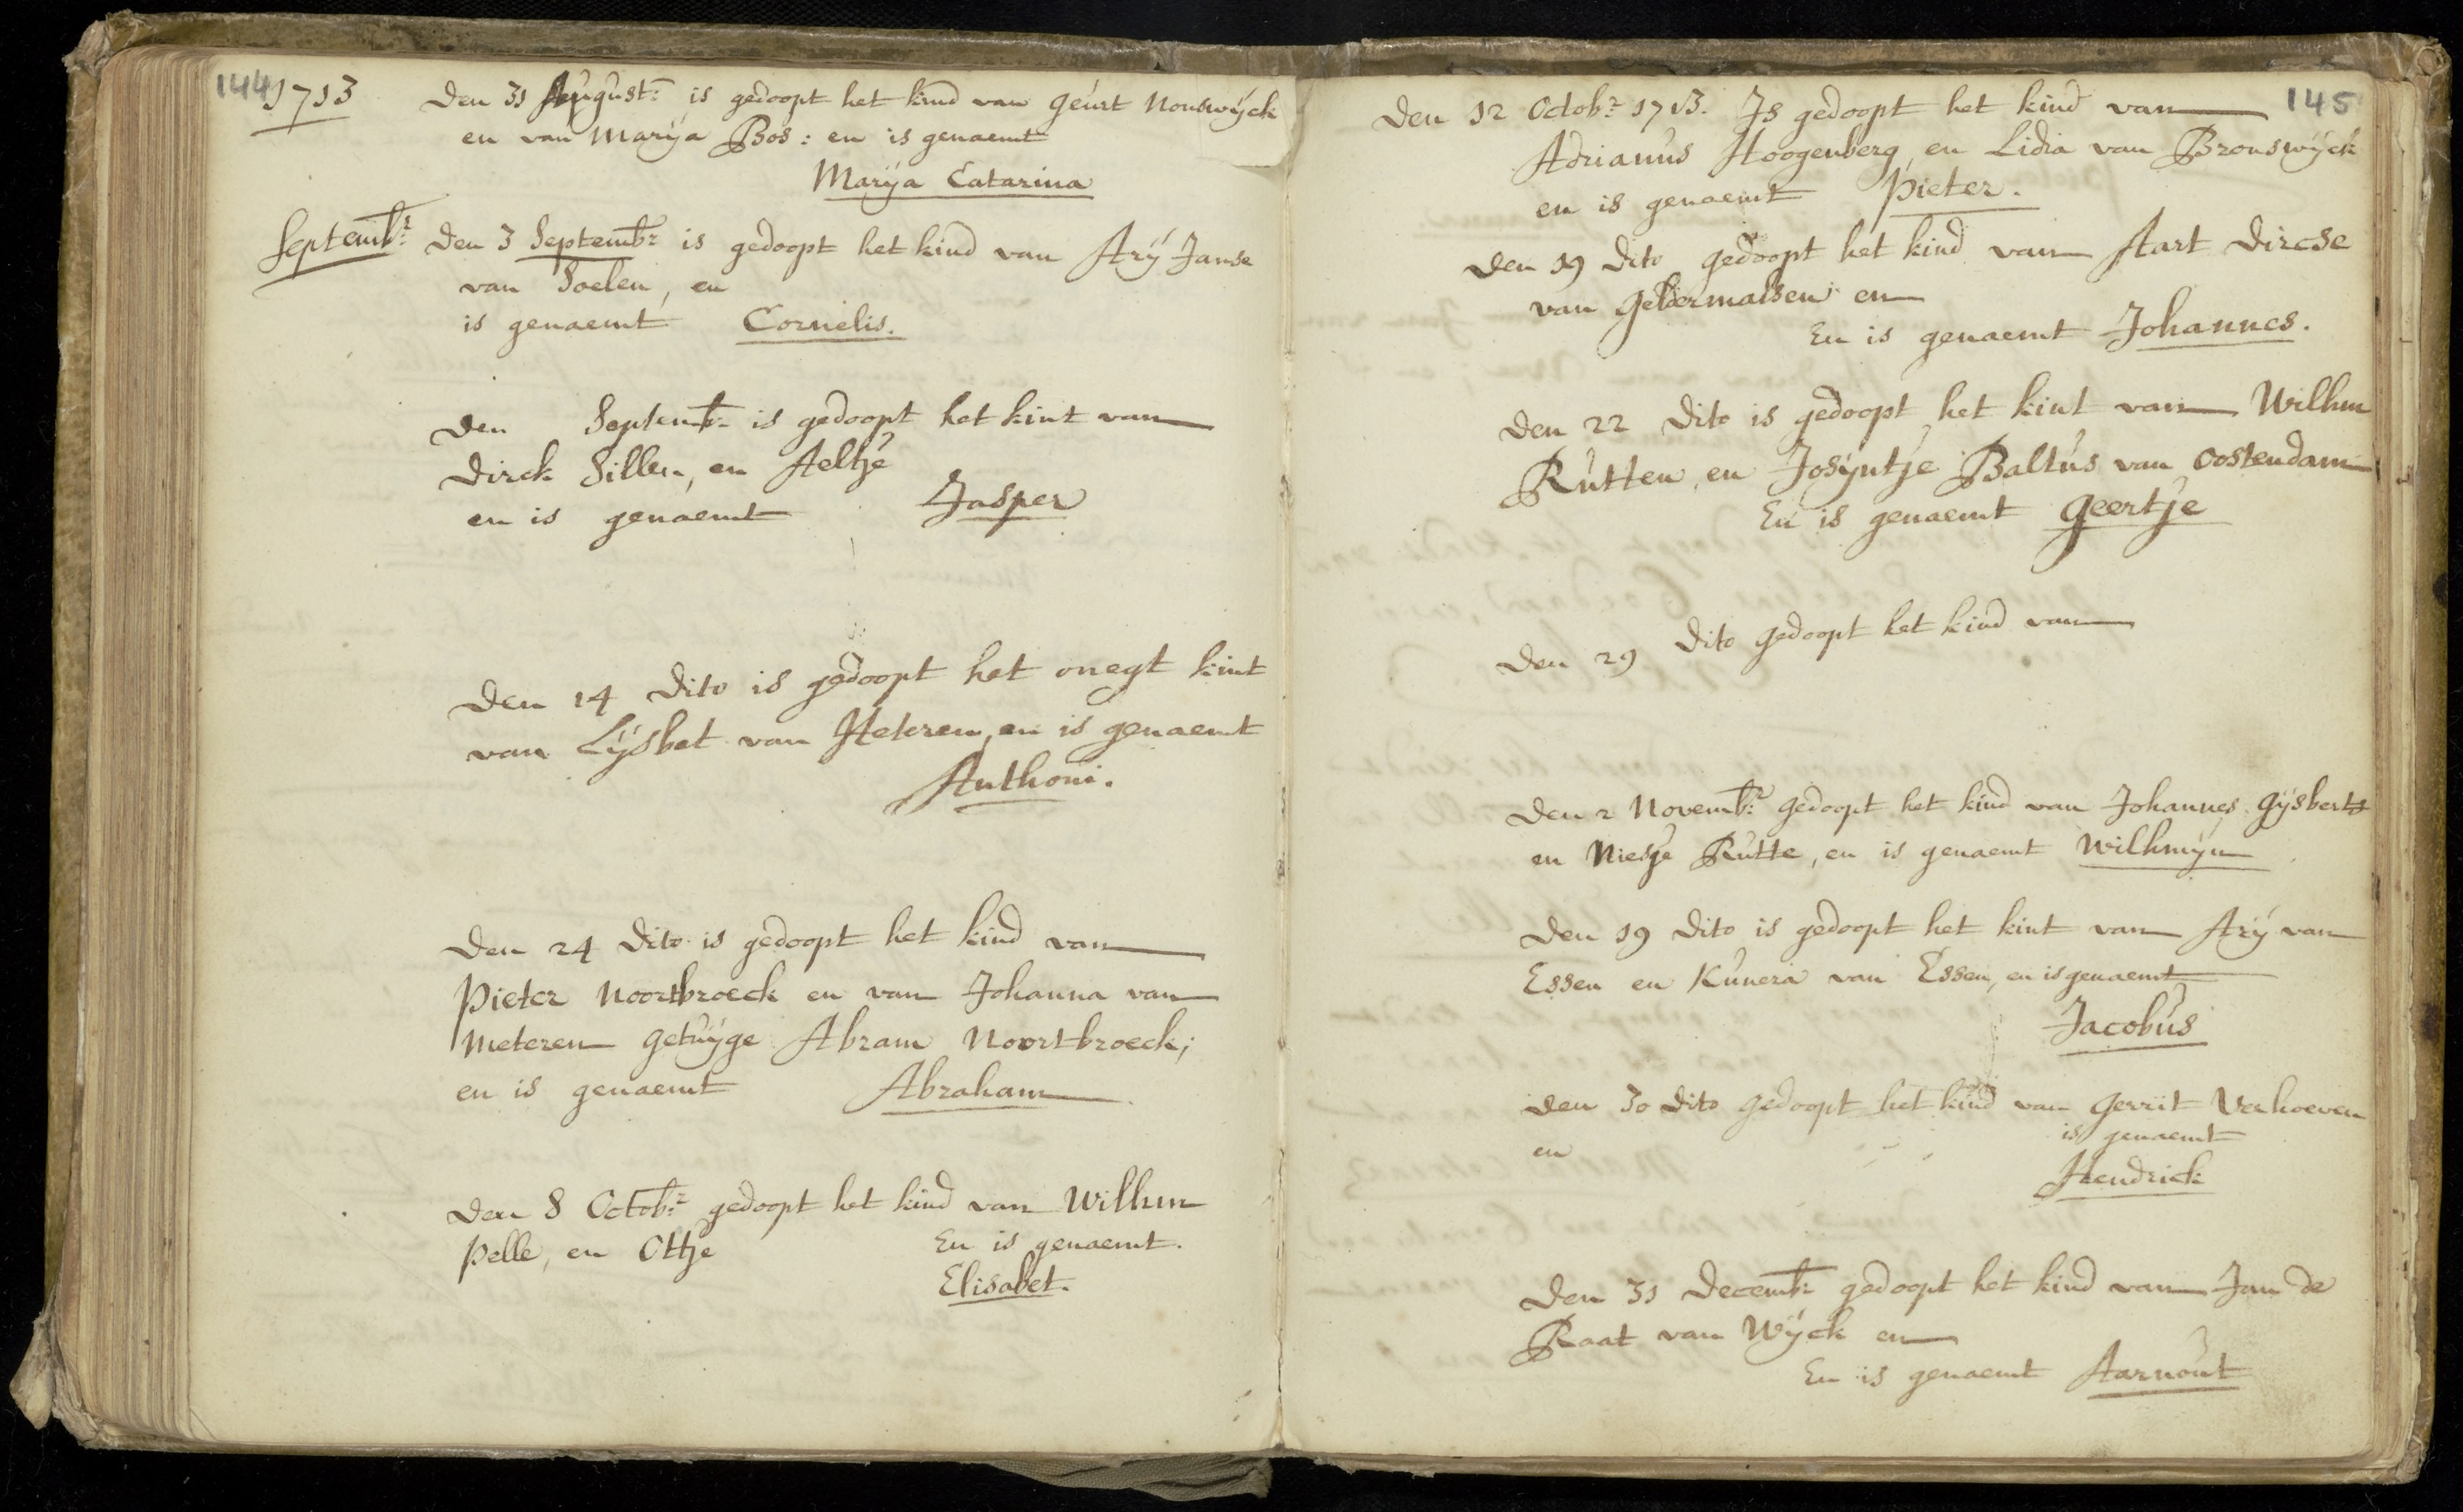 144
1713
Den 31 August: is gedoopt het kind van Geurt Nouswÿck
en van Marÿa Bos: en is genaemt
Marÿa Catarina
Septembr:
Den 3 Septembr is gedoopt het kind van Arÿ Janse
van Soelen, en
is genaemt Cornelis.
Den Septemb: is gedoopt het kint van
Dirck Sillen, en Aeltje
en is genaemt Jasper
Den 14 Dito is gedoopt het onegt kint
van Lÿsbet van Heteren, en is genaemt
Anthoni.
Den 24 Dito is gedoopt het kind van
Pieter Noortbroeck en van Johanna van
Meteren getuÿge Abram Noortbroeck;
en is genaemt Abraham
Den 8 Octobr: gedoopt het kind van Willm
Pelle, en Ottje En is genaemt.
Elisabet.
145
Den 12 Octobr: 1713. Is gedoopt het kind van
Adrianus Hoogenberg, en Lidia van Bronswÿck
en is genaemt Pieter.
Den 19 Dito gedoopt het kind van Aart Dircse
van Geldermalsen en
En is genaemt Johannes.
Den 22 Dito is gedoopt het kint van Willm
Rutten, en Josÿntje Baltus van Oostendam
En is genaemt Geertje
Den 29 Dito gedoopt het kind van
Den 2 Novembr: gedoopt het kind van Johannes Gÿsberts
en Niesje Rutte, en is genaemt Willmÿn
Den 19 Dito is gedoopt het kint van Arÿ van
Essen en Kunera van Essen, en is genaemt
Jacobus
Den 30 Dito gedoopt het kind van Gerrit Verhoeven
en is genaemt
Hendrick
Den 31 Decemb: gedoopt het kind van Jan de
Raat van Wÿck en
En is genaemt Aarnout